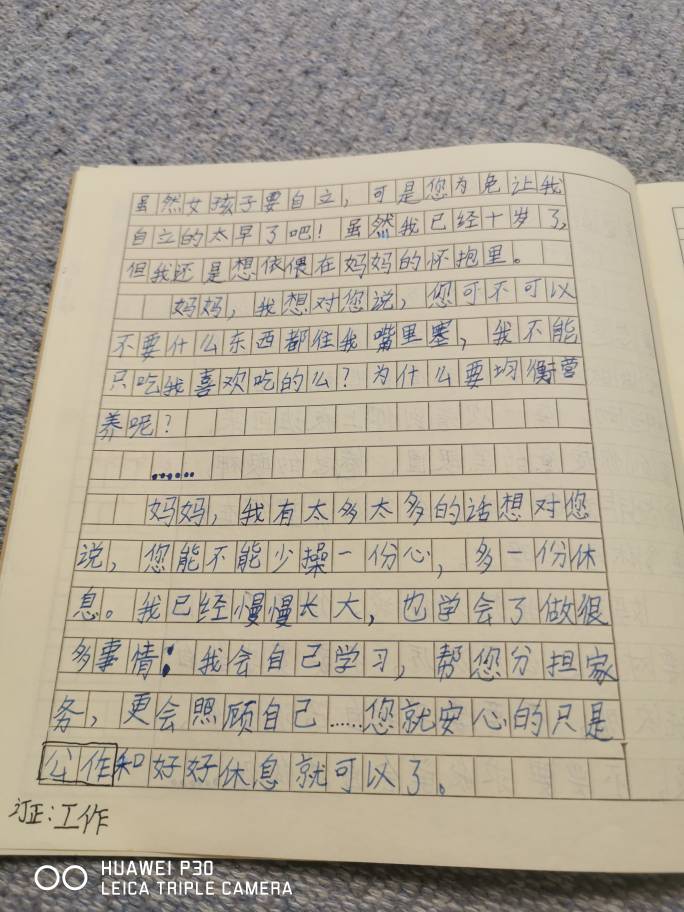 虽然女孩子要自立，可是您为免让我
自立的太早了吧！虽然我已经十岁了，
但我还是想依偎在妈妈的怀抱里。
妈妈，我想对您说，您可不可以
不要什么东西都往我嘴里塞，我不能
只吃我喜欢吃的么？为什么要均衡营
养呢？
……
妈妈，我有太多太多的话想对您
说，您能不能少操一份心，多一份休
息。我已经慢慢长大，也学会了做很
多事情：我会自己学习，帮您分担家
务，更会照顾自己……您就安心的只是
公作和好好休息就可以了。
订正：工作
HUAWEI P30
LEICA TRIPLE CAMERA